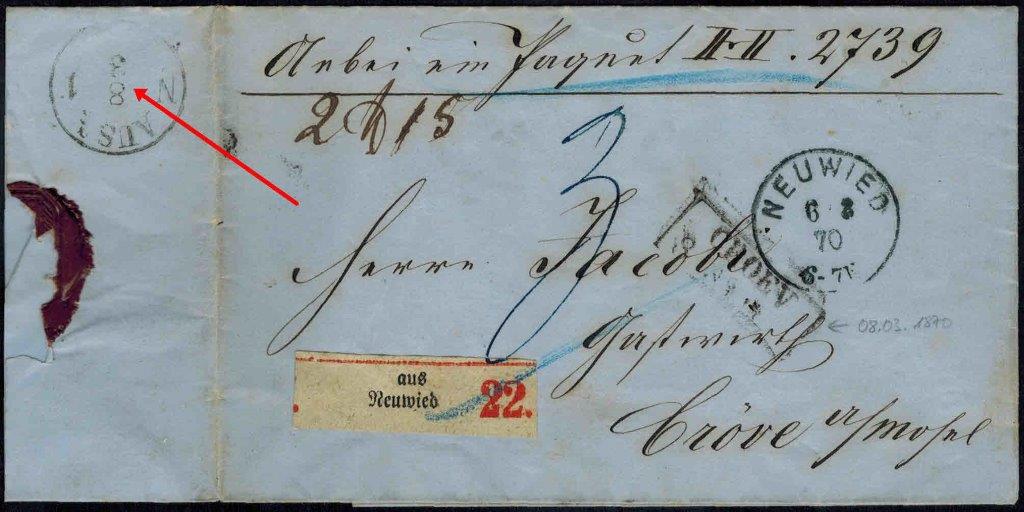 Anbei ein Paquet II-II. 2739
2 15
3
NEUWIED
6 3
70
6-7N
Herrn Jacobs
CROEV
8
← 08.03.1870
Gastwirth
aus
Neuwied 22.
Cröve a/Mosel
AUSG
8/3
N 1